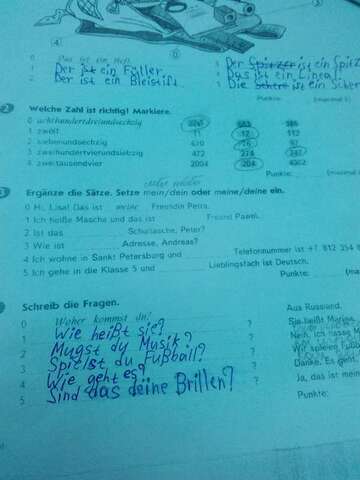 4
0
3
0 Das ist ein Heft.
1 Der ist ein Füller
2 Der ist ein Bleistift
3 Der Spitzer ist ein Spitz
4 Das ist ein Lineal.
5 Die Schere ist ein Scher
Punkte:
2 Welche Zahl ist richtig? Markiere.
0 achthundertdreiundsechzig 863
1 zwölf 11 12 112
2 siebenundsechzig 670 76 67
3 zweihundertvierundsiebzig 472 274 247
4 zweitausendvier 2004 204 4002
Punkte:
3 Ergänze die Sätze. Setze mein/dein oder meine/deine ein.
0 Hi, Lisa! Das ist meine Freundin Petra.
1 Ich heiße Mascha und das ist Freund Pawel.
2 Ist das Schultasche, Peter?
3 Wie ist Adresse, Andreas?
4 Ich wohne in Sankt Petersburg und Telefonnummer ist +7 812 354 8
5 Ich gehe in die Klasse 5 und Lieblingsfach ist Deutsch.
Punkte: (ma
Schreib die Fragen.
0 Woher kommst du? Aus Russland.
1 Wie heißt sie? ? Sie heißt Marina
2 Mugst du Musik? ? Nein, ich hasse
3 Spielst du Fußball? ? Wir spielen Fußb
4 Wie geht es? ? Danke. Es geht.
5 Sind das deine Brillen? ? Ja, das ist mein
Punkte: